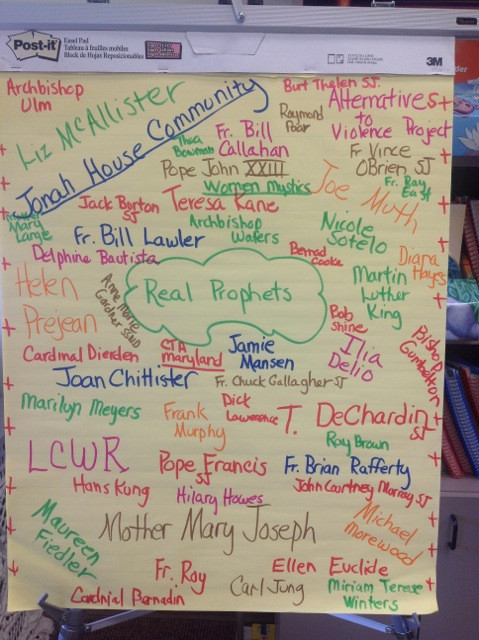 Post-it
Easel Pad
Tableau à feuilles mobiles
Block de Hojas Reposicionables
3M
Archbishop
Ulm
Liz McAllister
Jonah House Community
Burt Thelen SJ.
Alternatives
to
Violence Project
Raymond
Poor
Thea
Bowman
Fr. Bill
Callahan
Fr Vince
OBrien SJ
Pope John XXIII
Women Mystics
Joe Muth
Fr. Ray
East
Mary
Lange
Jack Borton
SJ
Teresa Kane
Archbishop
Waters
Nicole
Sotelo
Fr. Bill Lawler
Delphine Bautista
Bernad
Cooke
Diana
Hayes
Helen
Prejean
Anne Marie
Gardner SSND
Real Prophets
Martin
Luther
King
Bob
Shine
Bishop
Gumbeltron
Cardinal Dierden
CTA
maryland
Jamie
Mansen
Ilia
Delio
Joan Chittister
Fr. Chuck Gallagher SJ
Marilyn Meyers
Frank
Murphy
Dick
Lawrence
T. DeChardin
SJ
Ray Brown
LCWR
Pope Francis
SJ
Fr. Brian Rafferty
Hans Kung
Hilary Howes
John Courtney Murray SJ
Maureen
Fiedler
Mother Mary Joseph
Michael
Morewood
Fr. Roy
Ellen Euclide
Cardnial Barnadin
Carl Jung
Miriam Terese
Winters